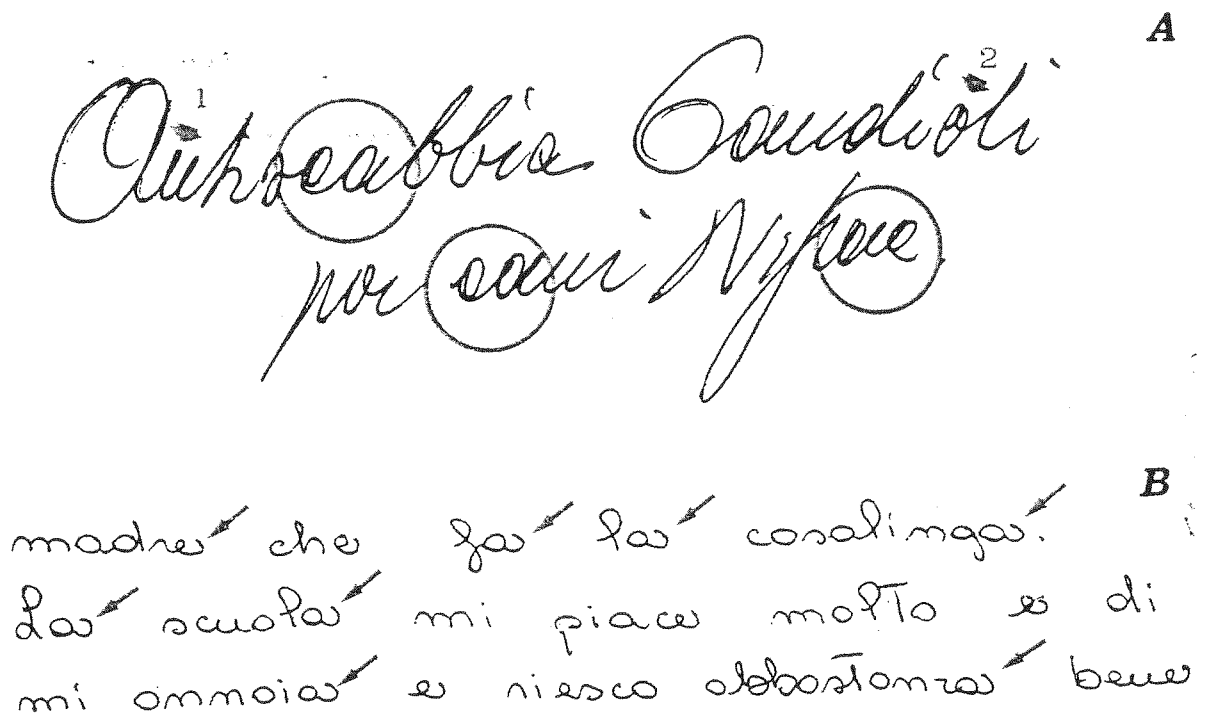 A
1 2
Antiscabbia Candioli
per cani
B
madre che fa la casalinga.
La scuola mi piace molto e di
mi annoia e riesco abbastanza bene